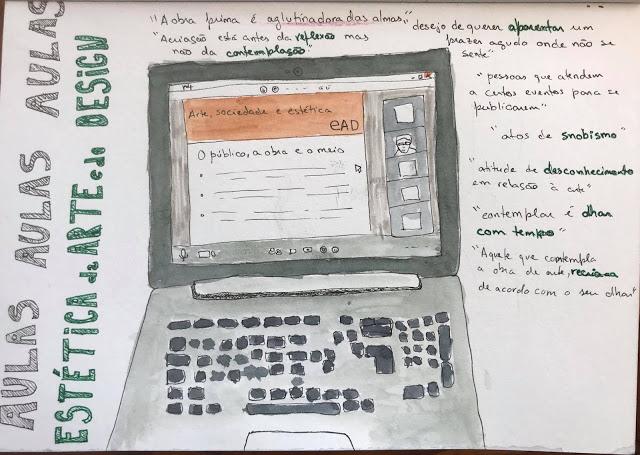 AULAS AULAS AULAS
ESTÉTICA da ARTE e do DESIGN
"A obra prima é aglutinadora das almas"
"A criação está antes da reflexão mas
não da contemplação"
"desejo de querer aparentar um
prazer agudo onde não se
sente"
"pessoas que atendem
a certos eventos para se
publicarem"
"atos de snobismo"
"atitude de desconhecimento
em relação à arte"
"contemplar é olhar
com tempo"
"Aquele que contempla
a obra de arte, recria-a
de acordo com o seu olhar"
Arte, sociedade e estética
eAD
O público, a obra e o meio